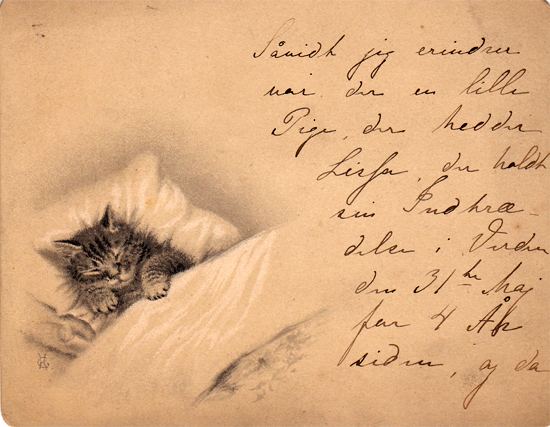 Såvidt jeg erindrer
var der en lille
Pige, der hedder
Lissa, der holdt
sin Indtræ-
delse i Verden
den 31te Maj
for 4 År
siden, og da